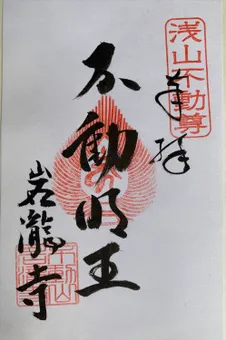 浅山不動尊
奉拝
不動明王
岩瀧寺